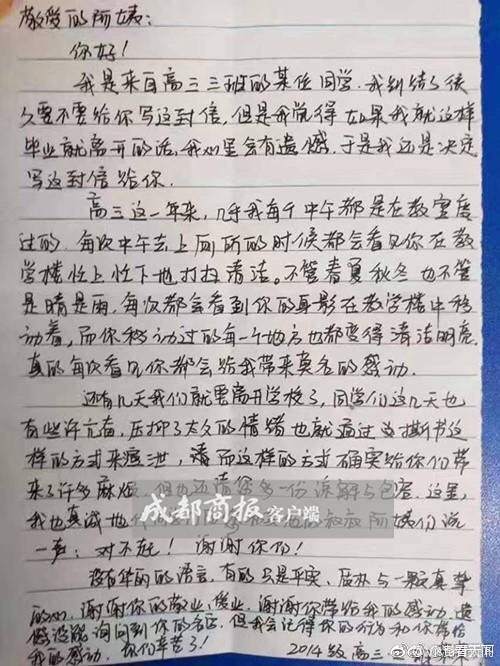 敬爱的阿姨：
你好！
我是来自高三三班的某位同学.我纠结了很
久要不要给你写这封信.但是我觉得如果我就这样
毕业就离开的话,我心里会有遗憾.于是我还是决定
写这封信给你.
高三这一年来,几乎我每个中午都是在教室度
过的.每次中午去上厕所的时候都会看见你在教
学楼忙上忙下地打扫清洁.不管春夏秋冬也不管
是晴是雨,每次都会看到你的身影在教学楼中移
动着,而你移动过的每一个地方也都变得清洁明亮.
真的每次看见你都会给我带来莫名的感动.
还有几天我们就要离开学校了,同学们这几天也
有些许亢奋,压抑了太久的情绪也就通过如撕书这
样的方式来痛泄,而这样的方式确实给你们带
来了许多麻烦.但也还请你多一份谅解与包容.这里,
我也真诚地叔叔阿姨们说
一声：对不起！谢谢你们！
没有华丽的语言,有的只是平实、质朴与一颗真挚
的心.谢谢你的敬业、乐业,谢谢你带给我的感动.遗
憾没能询问到你的名字.但我会记得你的行为和你带给
我的感动.你们辛苦了！ 2014级高三
成都商报客户端